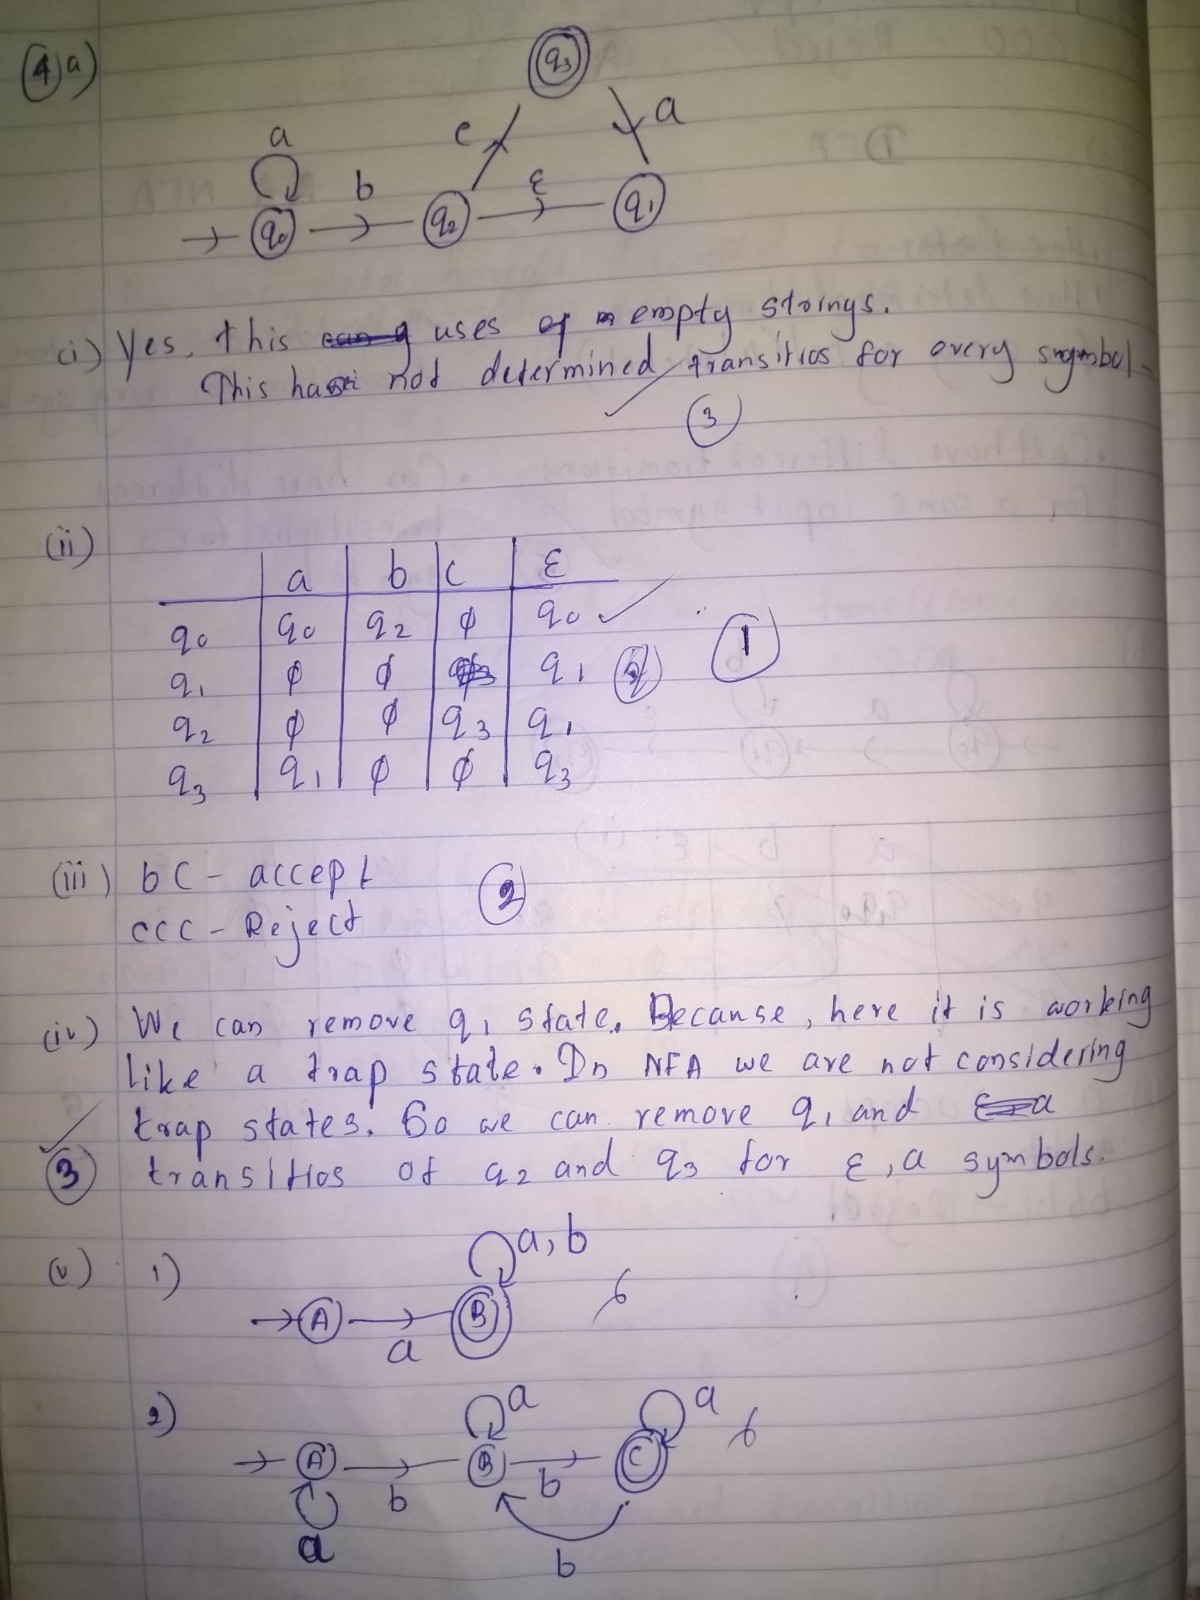 4) a)
q3
c
a
a
b
ε
q0
q2
q1
(i) Yes. This uses empty strings.
This has not determined transitios for every symbol.
3
(ii)
a b c ε
q0 q0 q2 φ q0
q1 φ φ q1
q2 φ φ q3 q1
q3 q1 φ φ q3
1
(iii) bc - accept
ccc - Reject
2
(iv) We can remove q1 state. Because, here it is working
like a trap state. In NFA we are not considering
trap states. So we can remove q1 and
transitios of q2 and q3 for ε, a symbols.
3
(v) 1)
a, b
A
B
a
6
2)
a
a
A
B
C
b
b
a
b
6